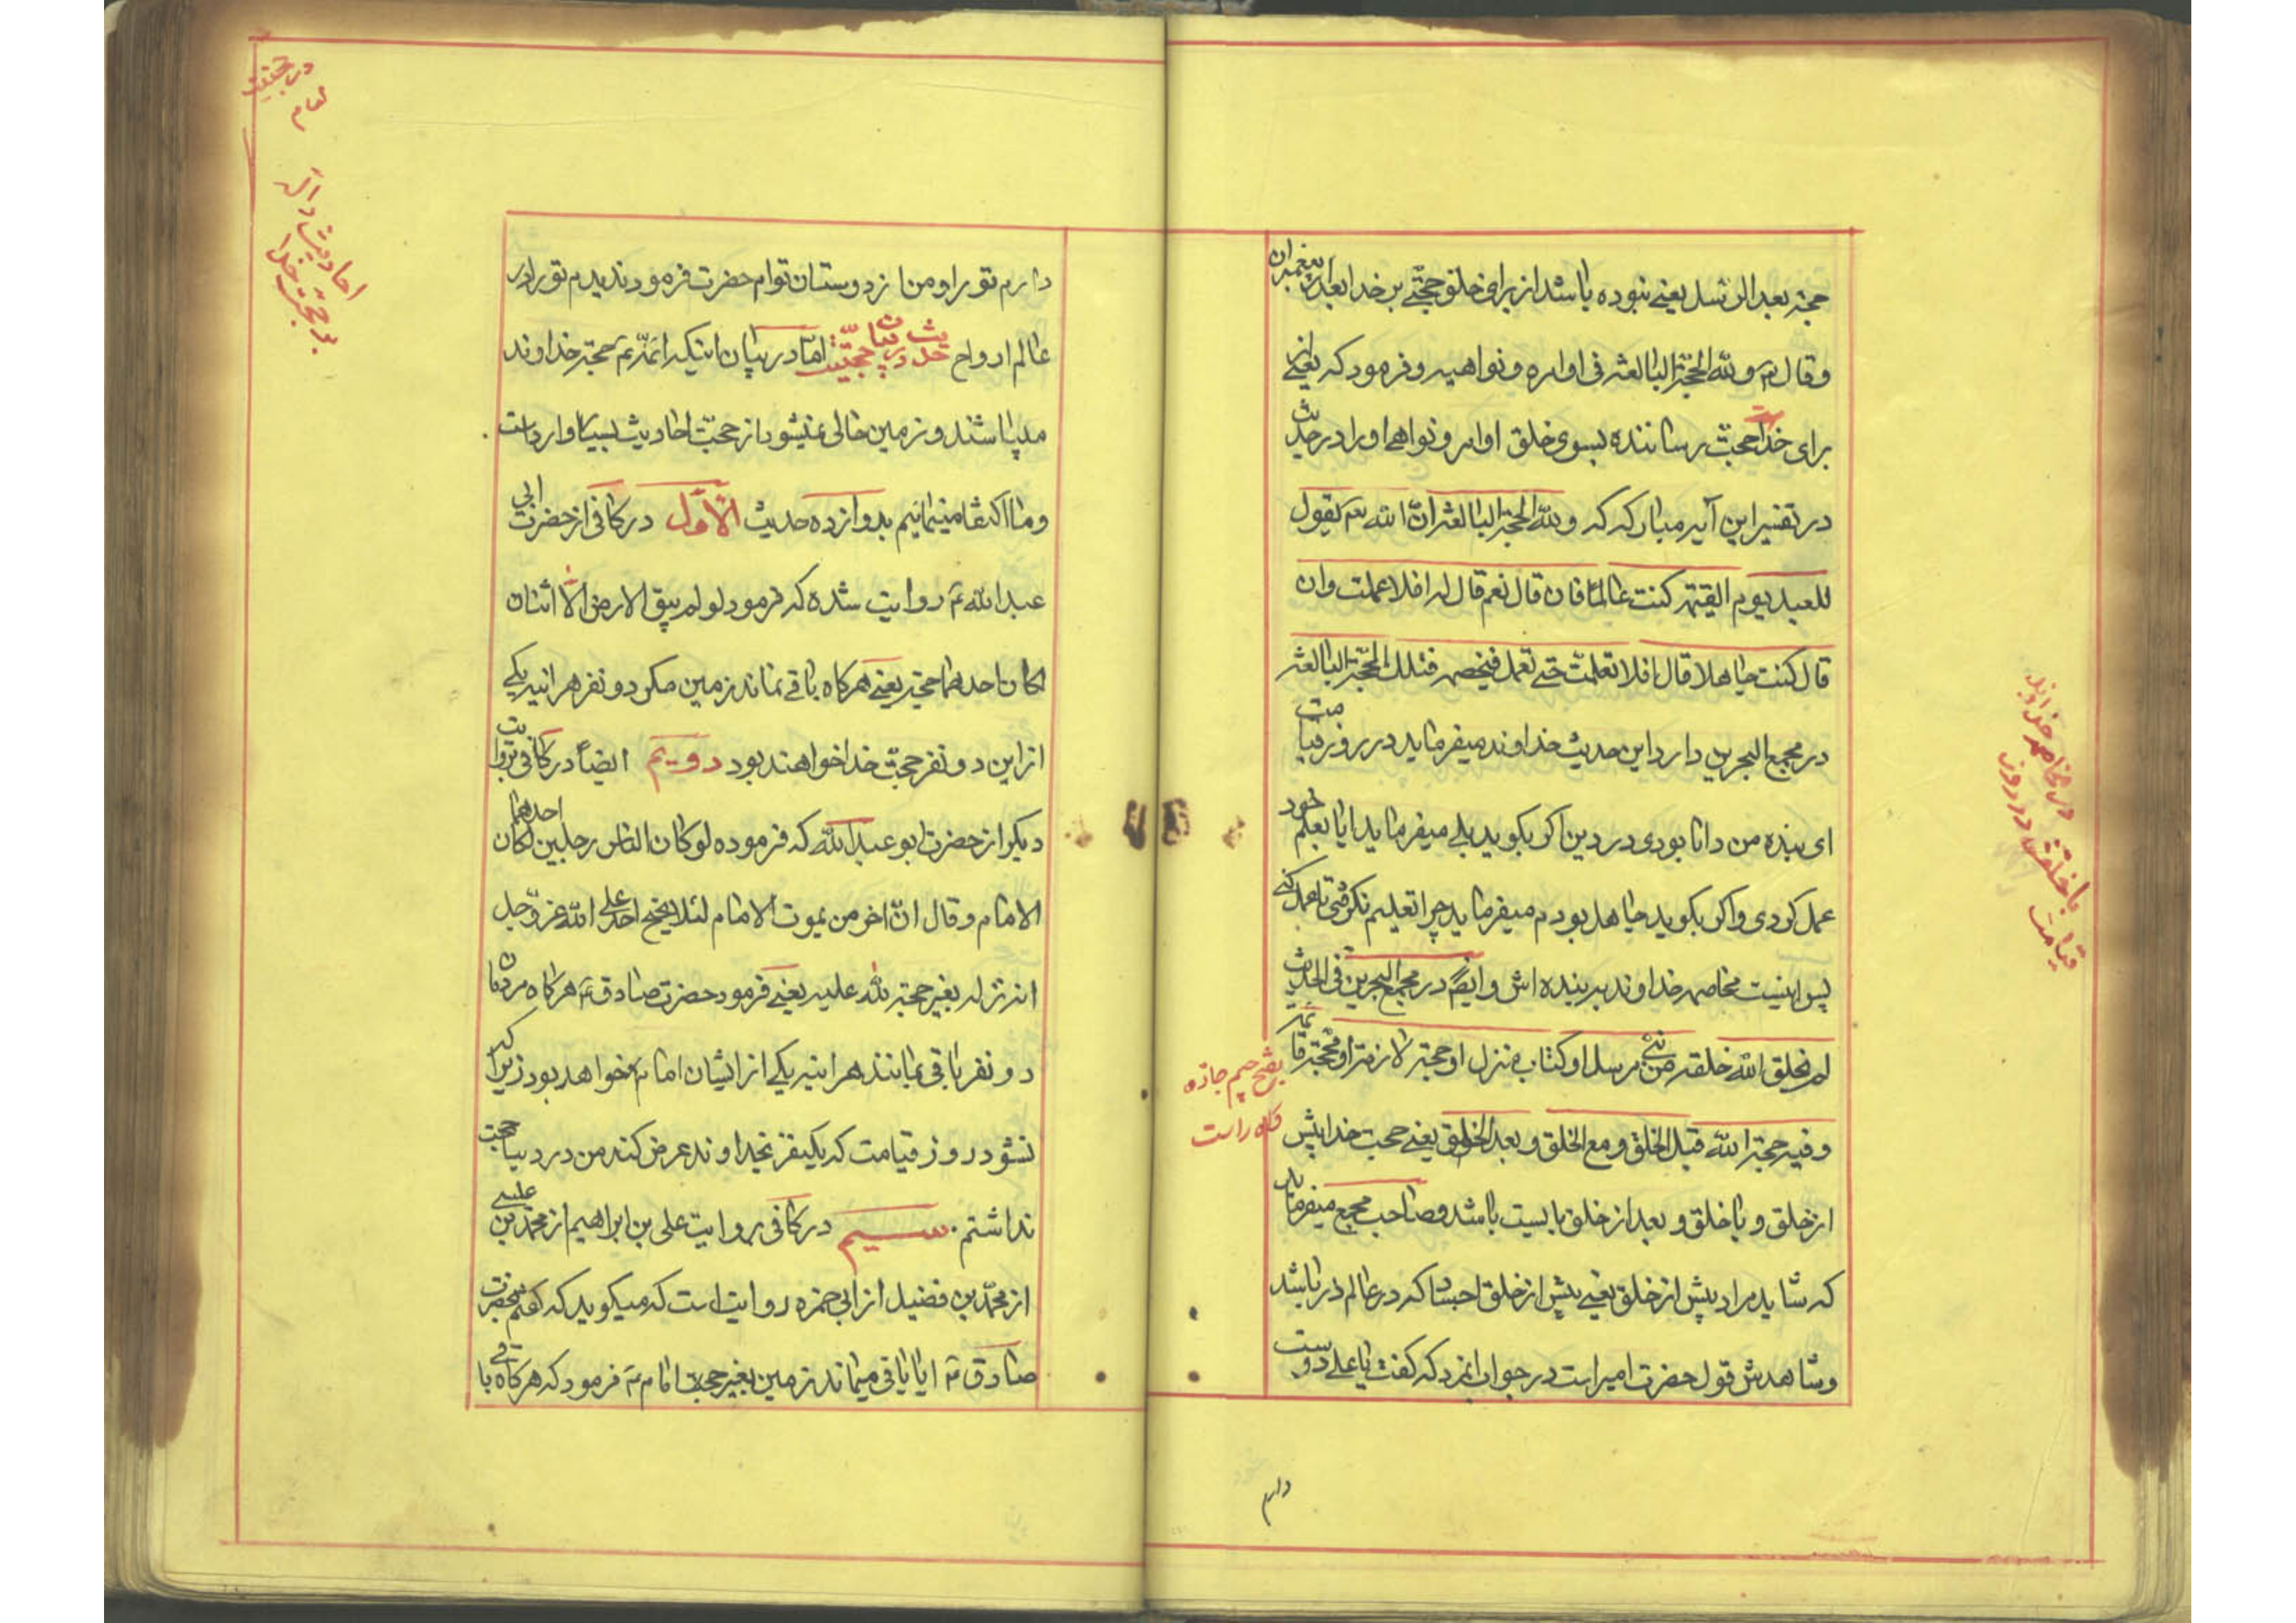 حجة بعد الرسل یعنے نبوده باشد از برای خلق حجّتے بر خدا بعد از پیغمبران
و قال تم و لله الحجّة البالغة فی اوامره و نواهیه و فرمود که یعنے از
برای خداست حجّت رساننده بسوی خلق اوامر و نواهے او را در حدیث
در تفسیر این آیه مبارکه که و لله الحجة البالغة انّ الله تم یقول
للعبد یوم القیمة کنت عالماً فان قال نعم قال له افلا عملت وان
قال کنت جاهلا قال افلا تعلمت حتے تعمل فیخصمه فتلك الحجّة البالغة
در مجمع البحرین دارد این حدیث خداوند میفرماید در روز قیامت
ای بنده من دانا بودی در دین اکر بکوید بلے میفرماید ایا بعلم خود
عمل کردی واکر بکوید جاهل بودم میفرماید چرا تعلیم نکرفتی تا عمل کنے
پس اینست مخاصمه خداوند بر بنده اش وایضاً در مجمع البحرین فی الحدیث
لم یخلق الله خلقه من نبے مرسل او کتاب منزل او حجة لازمة او محجّة قائمة
و فیه حجة الله قبل الخلق و مع الخلق و بعد الخلق یعنے حجت خدا پیش
از خلق و با خلق و بعد از خلق بایست باشد و صاحب مجمع میفرماید
که شاید مراد پیش از خلق یعنے پیش از خلق اجساد که در عالم ذر باشد
وشاهدش قول حضرت امیر است در جواب انمرد که کفت یا علے دوست
دارم
مخاصمه خداوند
با خلقش در روز
قیامت
بفتح جیم جاده
کاه راست
دارم تو را و من از دوستان توام حضرت فرمودند ندیدم تو را در
عالم ارواح حدیث در بیان حجّیّت امّا در بیان اینکه ائمّه تم حجة خداوند
میباشند و زمین خالی نمیشود از حجّت احادیث بسیار وارد است
وما اکتفا مینمائیم بدوازده حدیث الاوّل در کافی از حضرت ابی
عبد الله تم روایت شده که فرمود لو لم یبق الارض الّا اثنان
لکان احدهما حجّة یعنے هرکاه باقے نماند زمین مکر دو نفر هراینه یکے
از این دو نفر حجّت خدا خواهند بود دویم ایضاً در کافی بروایت
دیکر از حضرت ابو عبد الله که فرموده لو کان الناس رجلین لکان احدهما
الامام وقال انّ اخر من یموت الامام لئلا یحتج احد علے الله عز وجل
انه ترکه بغیر حجة لله علیه یعنے فرمود حضرت صادق تم هرکاه مردمان
دو نفر باقی بمانند هراینه یکے از ایشان امام خواهد بود زیرا که
نشود روز قیامت که یکنفر بخداوند عرض کند من در دنیا حجت
نداشتم سیم در کافی بروایت علی بن ابراهیم از محمّد بن عیسے
از محمّد بن فضیل از ابی حمزه روایت است که میکوید که کفتم بحضرت
صادق تم ایا باقی میماند زمین بغیر حجت امام تم فرمود که هرکاه باقے
در حقیقت
امام
احادیث داله
بر حجّت خدا